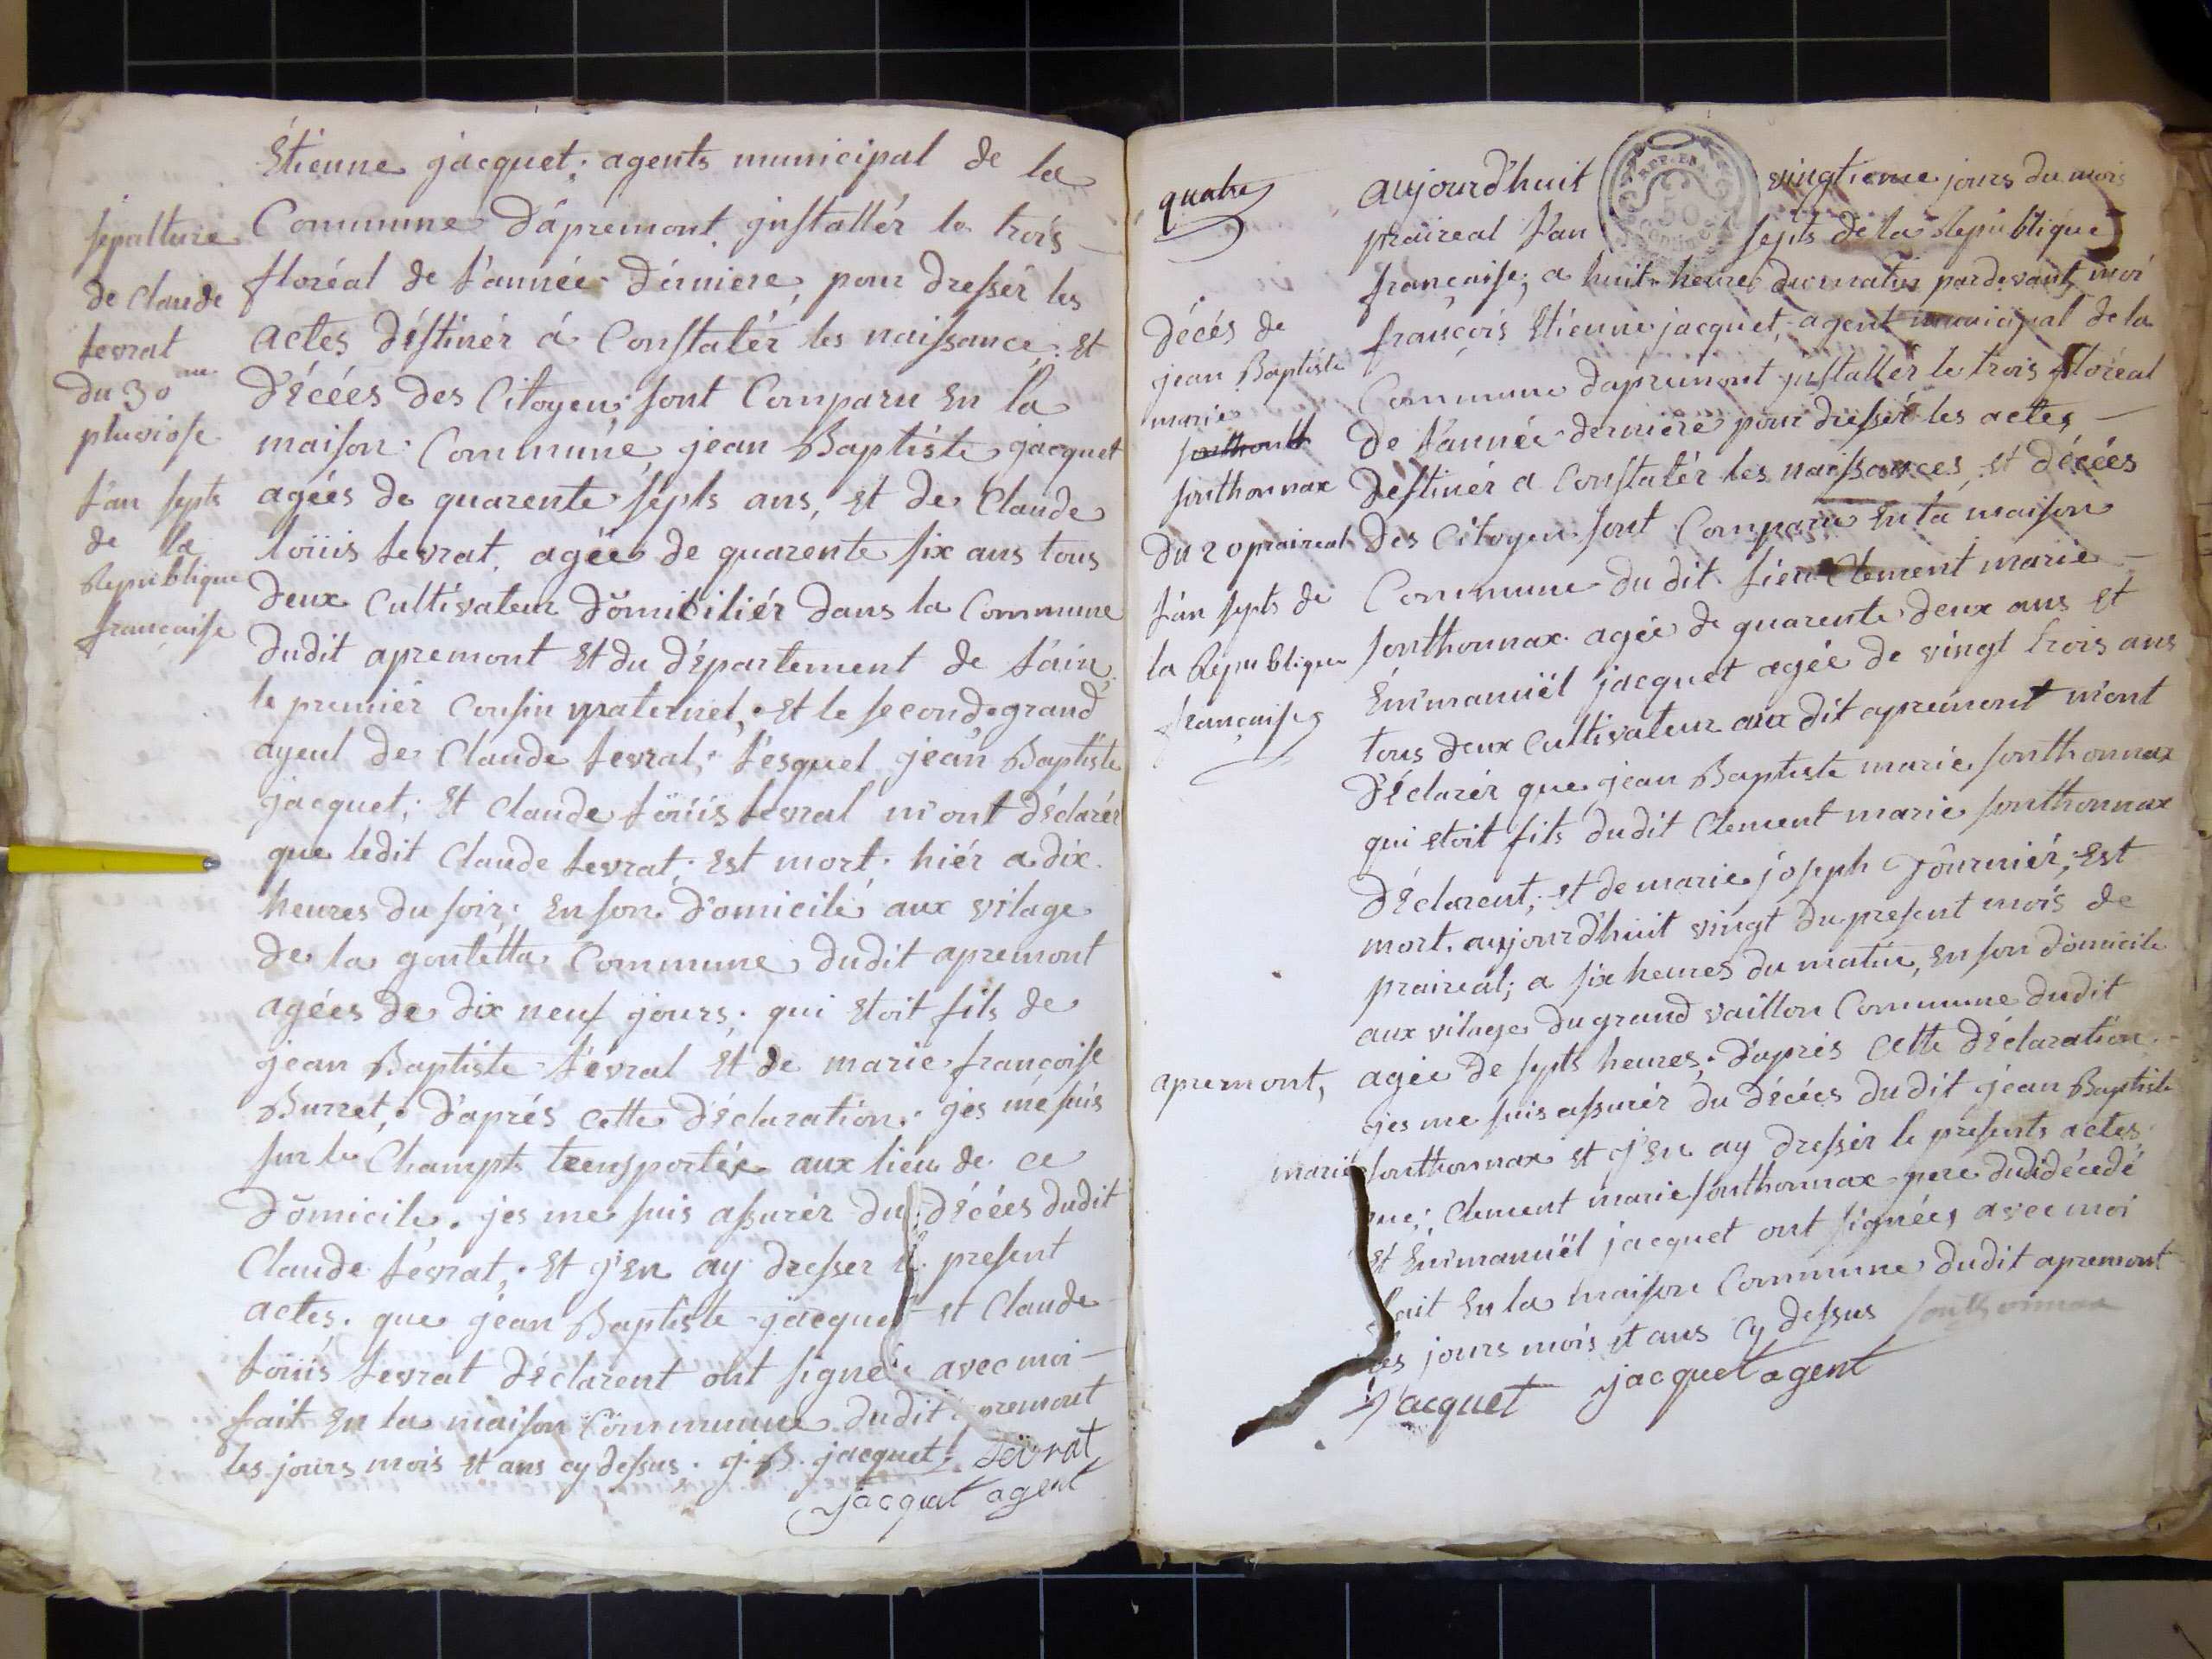 Étienne jacquet; agents municipal de la
Commune d'apremont, jnstallér le trois
floréal de l'année dérniere, pour dressér les
actes déstinér á Constatér les naissance; et
décées des Citoyen; sont Comparu En la
maison Commune, jean Baptiste jacquet
agées de quarente septs ans, et de Claude
loüis levrat, agée de quarente six ans tous
deux Cultivateur domiciliér dans la Commune
dudit apremont et du département de l'ain,
le premiér Cousin maternel, et le second grand
ayeul de Claude levrat; lesquel jean Baptiste
jacquet; et Claude loüis levrat m'ont déclarér
que ledit Claude levrat; est mort; hiér a dix
heures du soir; En son domicilé aux vilage
de la goutetta Commune dudit apremont
agées de dix neuf jours; qui etoit fils de
jean Baptiste levrat et de marie françoise
Burret; d'aprés cette déclaration; jes me suis
sur le Champts trensportée aux lieu de ce
domicile, jes me suis assurér du décées dudit
Claude levrat; et j'en ay dresser le present
actes. que jean Baptiste jacquet et Claude
loüis levrat déclarent ont signeé avec moi
fait En la maison Commune dudit apremont
les jours mois et ans cy dessus. j. B. jacquet levrat
jacquet agent
sepulture
de Claude
levrat
du 30me
pluviose
l'an septs
de la
Republique
française
quatre
aujourd'huit vingtieme jours du mois
praireal l'an septs de la Republique
française; a huit heures du matin pardevant moi
françois Etienne jacquet, agent municipal de la
Commune d'apremont jnstallér le trois floréal
de l'année derniere pour dressér les actes
destinér a Constatér les naissances, et décées
des Citoyen sont Comparu En la maison
Commune du dit lieu Clement marie
sonthonnax agée de quarente deux ans et
Emmanuël jacquet agée de vingt trois ans
tous deux Cultivateur aux dit apremont m'ont
déclarér que jean Baptiste marie sonthonnax
qui etoit fils dudit Clement marie sonthonnax
déclarent; et de marie joseph fournier; Est
mort, aujourd'huit vingt du present mois de
praireal; a six heures du matin, En son domicile
aux vilage du grand vaillon Commune dudit
apremont, agée de septs heures; d'après Cette déclaration
jes me suis assurér du décées du dit jean Baptiste
marie sonthonnax et j'En ay dressér le presents actes
que; Clement marie sonthonnax pere dudidécedé
et Emmanuël jacquet ont signées avec moi
fait En la maison Commune dudit apremont
les jours mois et ans cy dessus sonthonnax
Jacquet jacquet agent
décés de
jean Baptiste
marie
sonthonnax
du 20 praireal
l'an septs de
la Republique
française
REP. FRA.
50
centimes